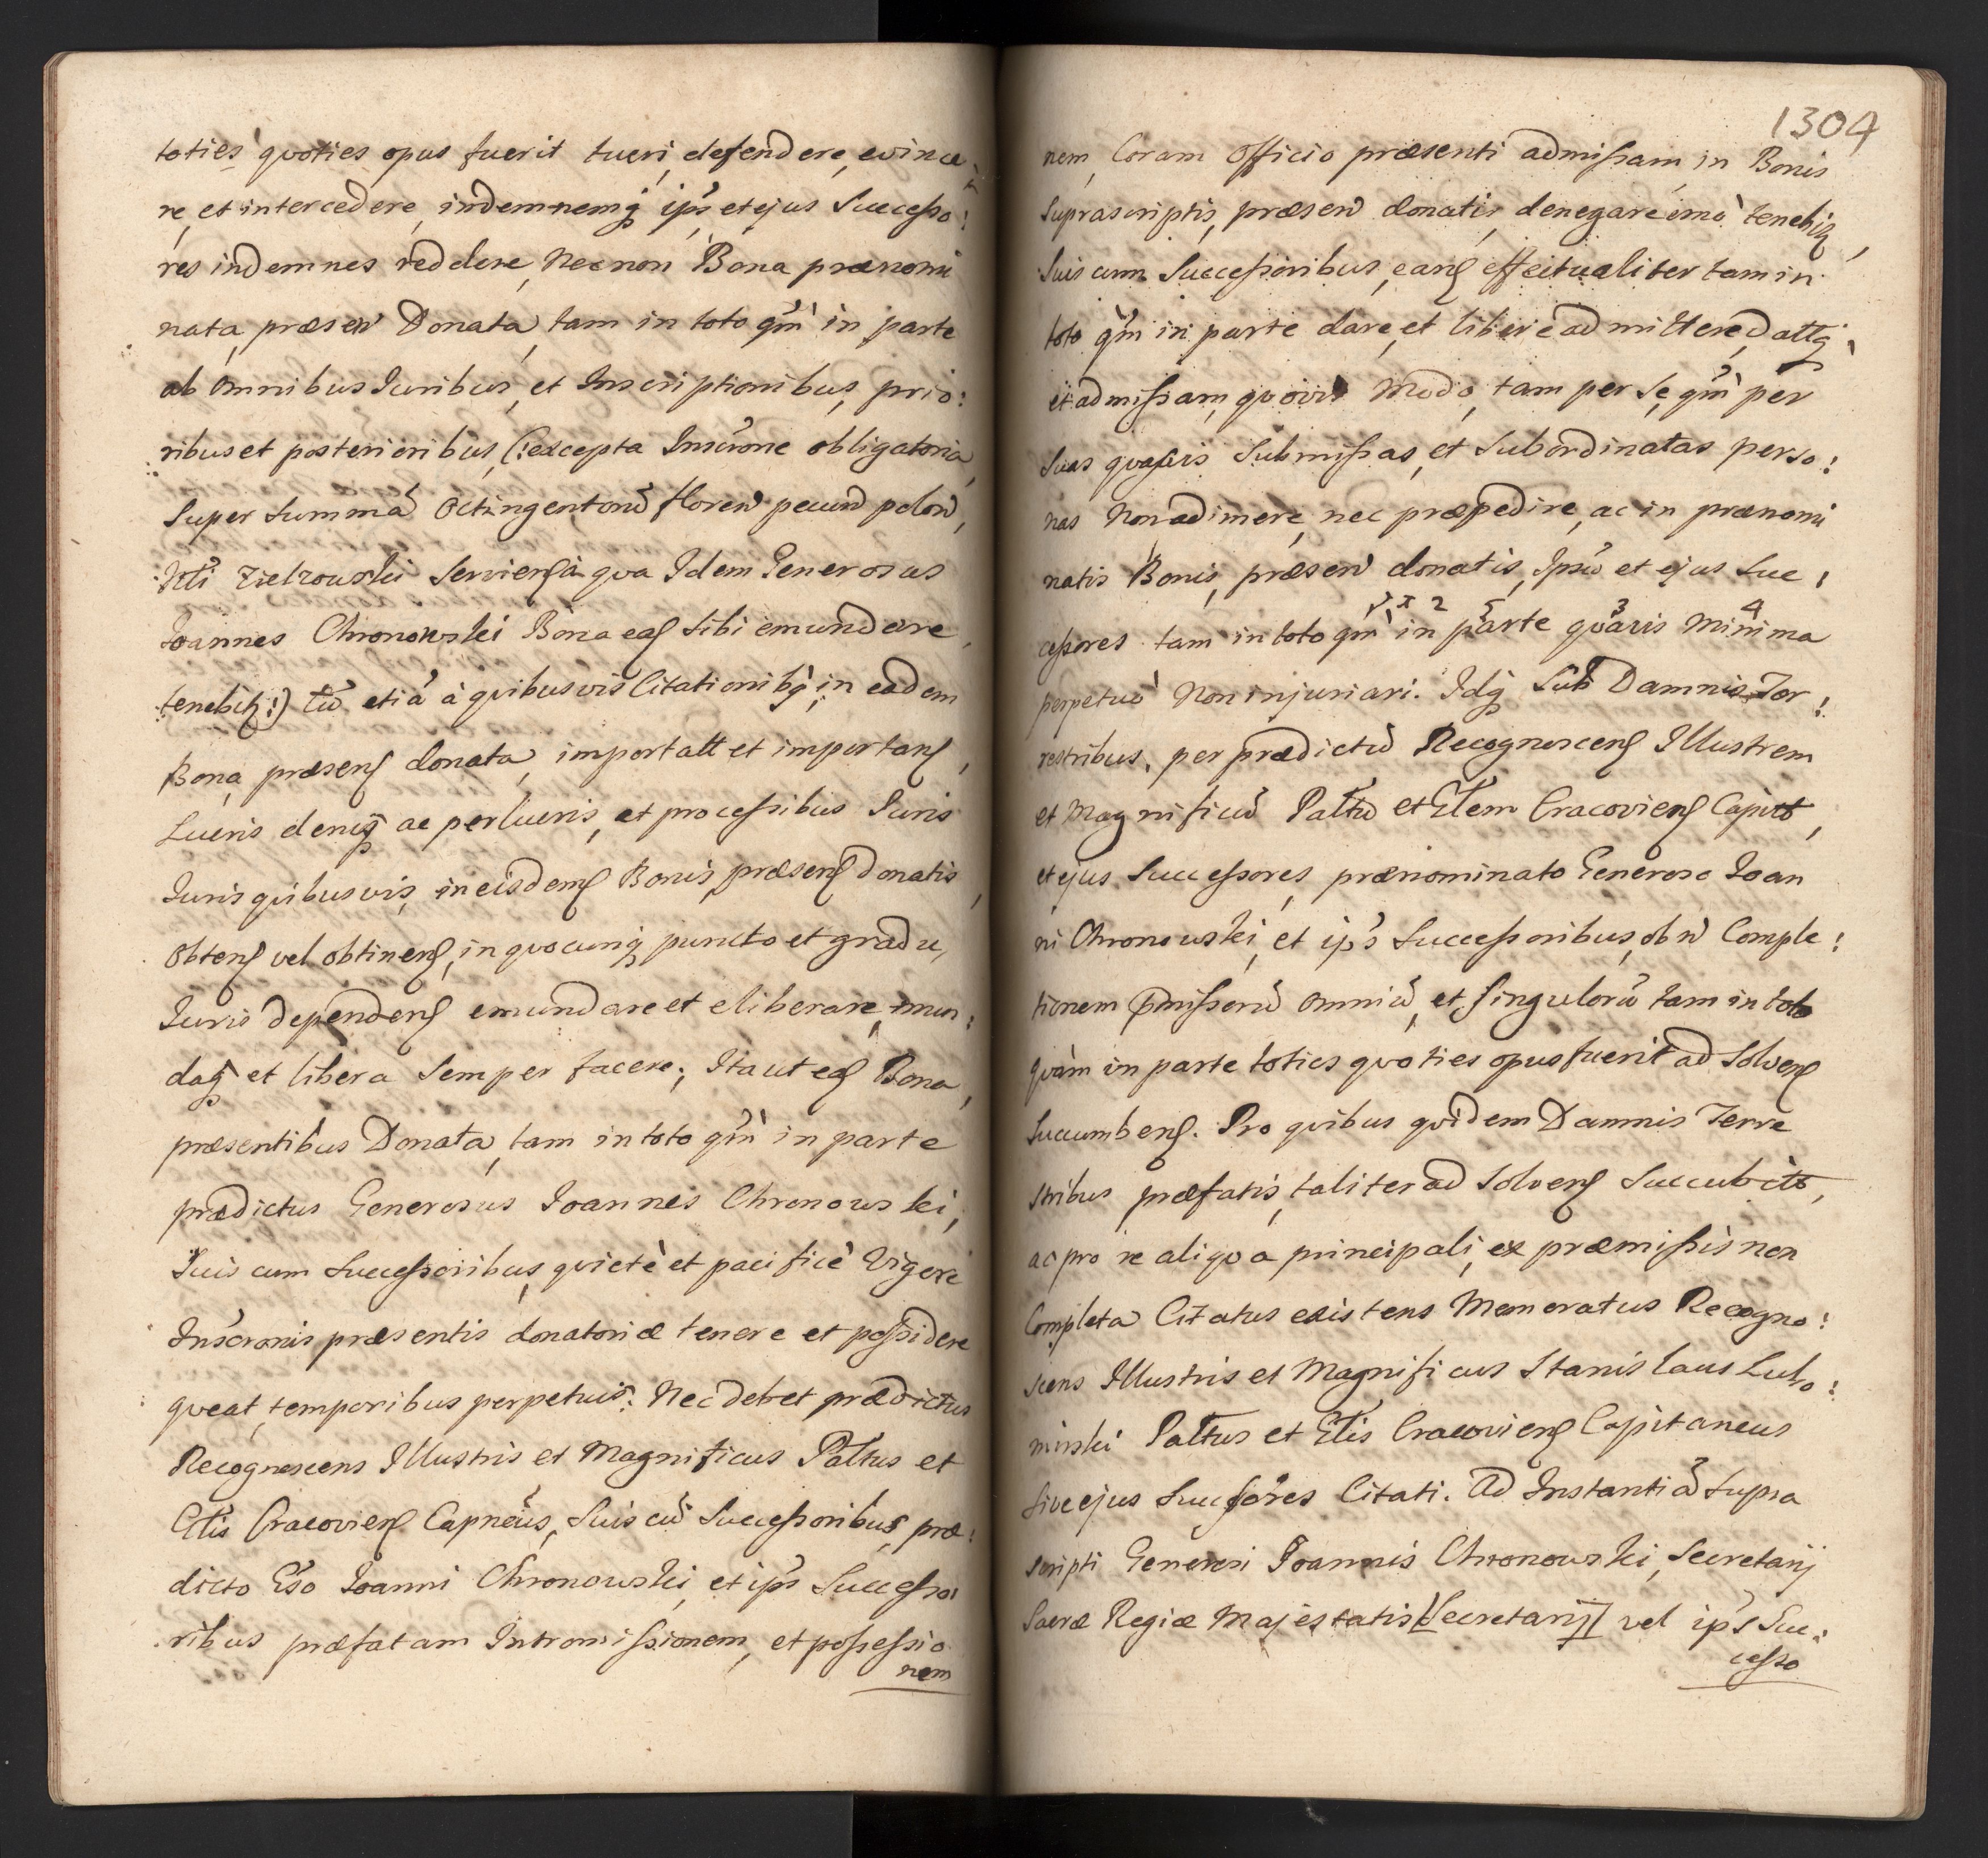 toties quoties opus fuerit tueri, defendere, evince
re, et intercedere, indemnemq ips et ejus Successo:
res indemnes reddere, Necnon Bona prænomi
nata, præsen Donata, tam in toto qm in parte
ab omnibus Juribus, et Inscriptionibus, prio:
ribus et posterioribus, (:excepta Inscrone obligatoria,
Super Summa Octingentoru floren pecun polon,
Zielzowski Serviens à qua Idem Generosus
Joannes Chronowski Bona eas sibi emundare
tenebit:) tu etia à quibusvis Citationibq, in eadem
Bona, præsens donata, importatt et importans,
Lucris deniq ac perlucris, et processibus Juris
Juris quibusvis, in eisdems Bonis, præsens donatis,
Obtens vel obtinens, in quocunq puncto et gradu,
Juris dependens emundare et eliberare, mun:
daq et libera Semper facere; Ita ut eas Bona,
præsentibus Donata, tam in toto qm in parte
prædictus Generosus Joannes Chronowski,
Suis cum Successoribus, quietè et pacificè Vigore
Inscronis præsentis donatoriæ tenere et possidere
queat, temporibus perpetuis. Nec debet prædictus
Recognoscens Illustris et Magnificus Paltus et
Gtis Cracoviens Capneus, Suis cu Successoribus, præ:
dicto Gso Joanni Chronowski, et ips Successo
ribus præfatam Intromissionem, et possessio
nem
1304
nem, Coram Officio præsenti admissam, in Bonis
Suprascriptis, præsen donatis, denegare imò tenebit,
Suis cum Successoribus, eans effectualiter tam in
toto qm in parte dare, et liberè admittere, dattq
et admissam, quovis Modo, tam per Se, qm per
Suas quasvis Submissas, et Subordinatas perso:
nas Non adimere, nec præpedire, ac in prænomi
natis Bonis, præsen donatis, Ipsu et ejus Suc:
cessores tam in toto qm in parte quavis Minima
1 2 5 3 4
perpetuò Non injuriari. Idq Sub Damnis Ter:
restribus, per prædictu Recognoscens Illustrem
et Magnificu Paltu et Gtem Cracoviens Capitt,
et ejus Successores, prænominato Generoso Joan
ni Chronowski, et ips Successoribus, ob n Comple:
tionem pmissoru omniu, et singuloru tam in toto
quàm in parte toties quoties opus fuerit ad Solvens
Succumbens. Pro quibus quidem Damnis Terre
stribus præfatis, taliter ad Solvens Succubitt,
ac pro re aliqua principali, ex præmissis non
Completa Citatus existens Memoratus Recogno:
scens Illustris et Magnificus Stanislaus Lubo:
mirski Paltus et Gtis Cracoviens Capitaneus
sive ejus Successores Citati. Ad Instantia Supra
scripti Generosi Joannis Chronowski, Secretarij
Sacræ Regiæ Majestatis [Secretarij] vel ips Suc:
cesso